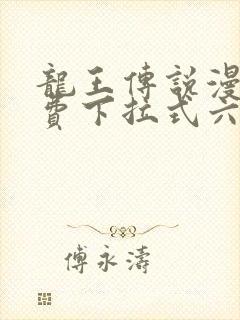 龍王傳說漫
費下拉式六
傅永濤